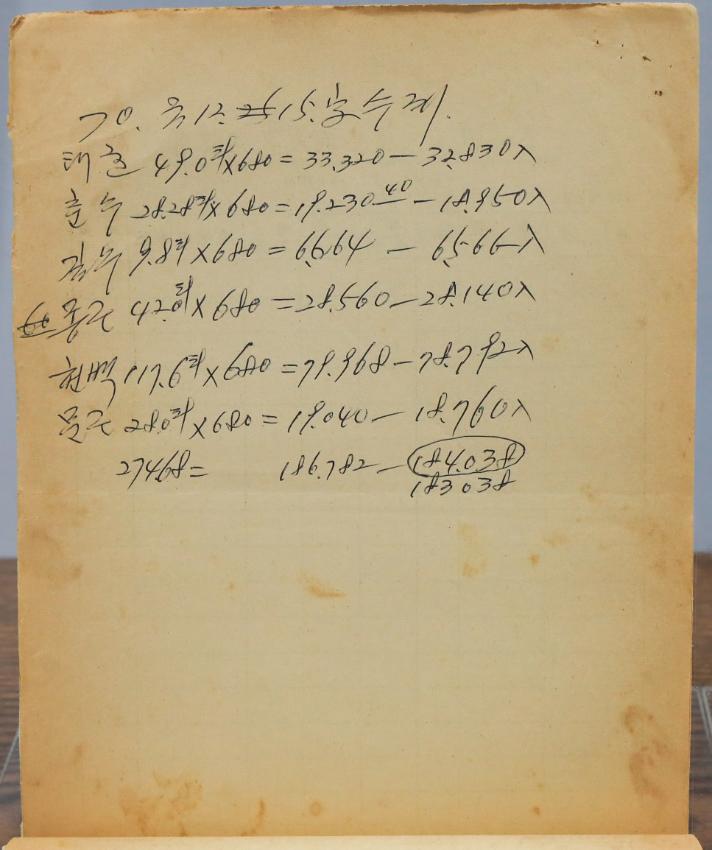 70. 음 12. 25 15. 호수계.
태현 49.0타×680 = 33.320 — 32.830入
춘수 28.28타×680 = 19.230 40 — 18.950入
9.8타×680 = 6.664 — 6.566入
42.0타×680 = 28.560 — 28.140入
117.6타×680 = 79.968 — 78.792入
28.0타×680 = 19.040 — 18.760入
274.68 = 186.782 — 184.038
183038